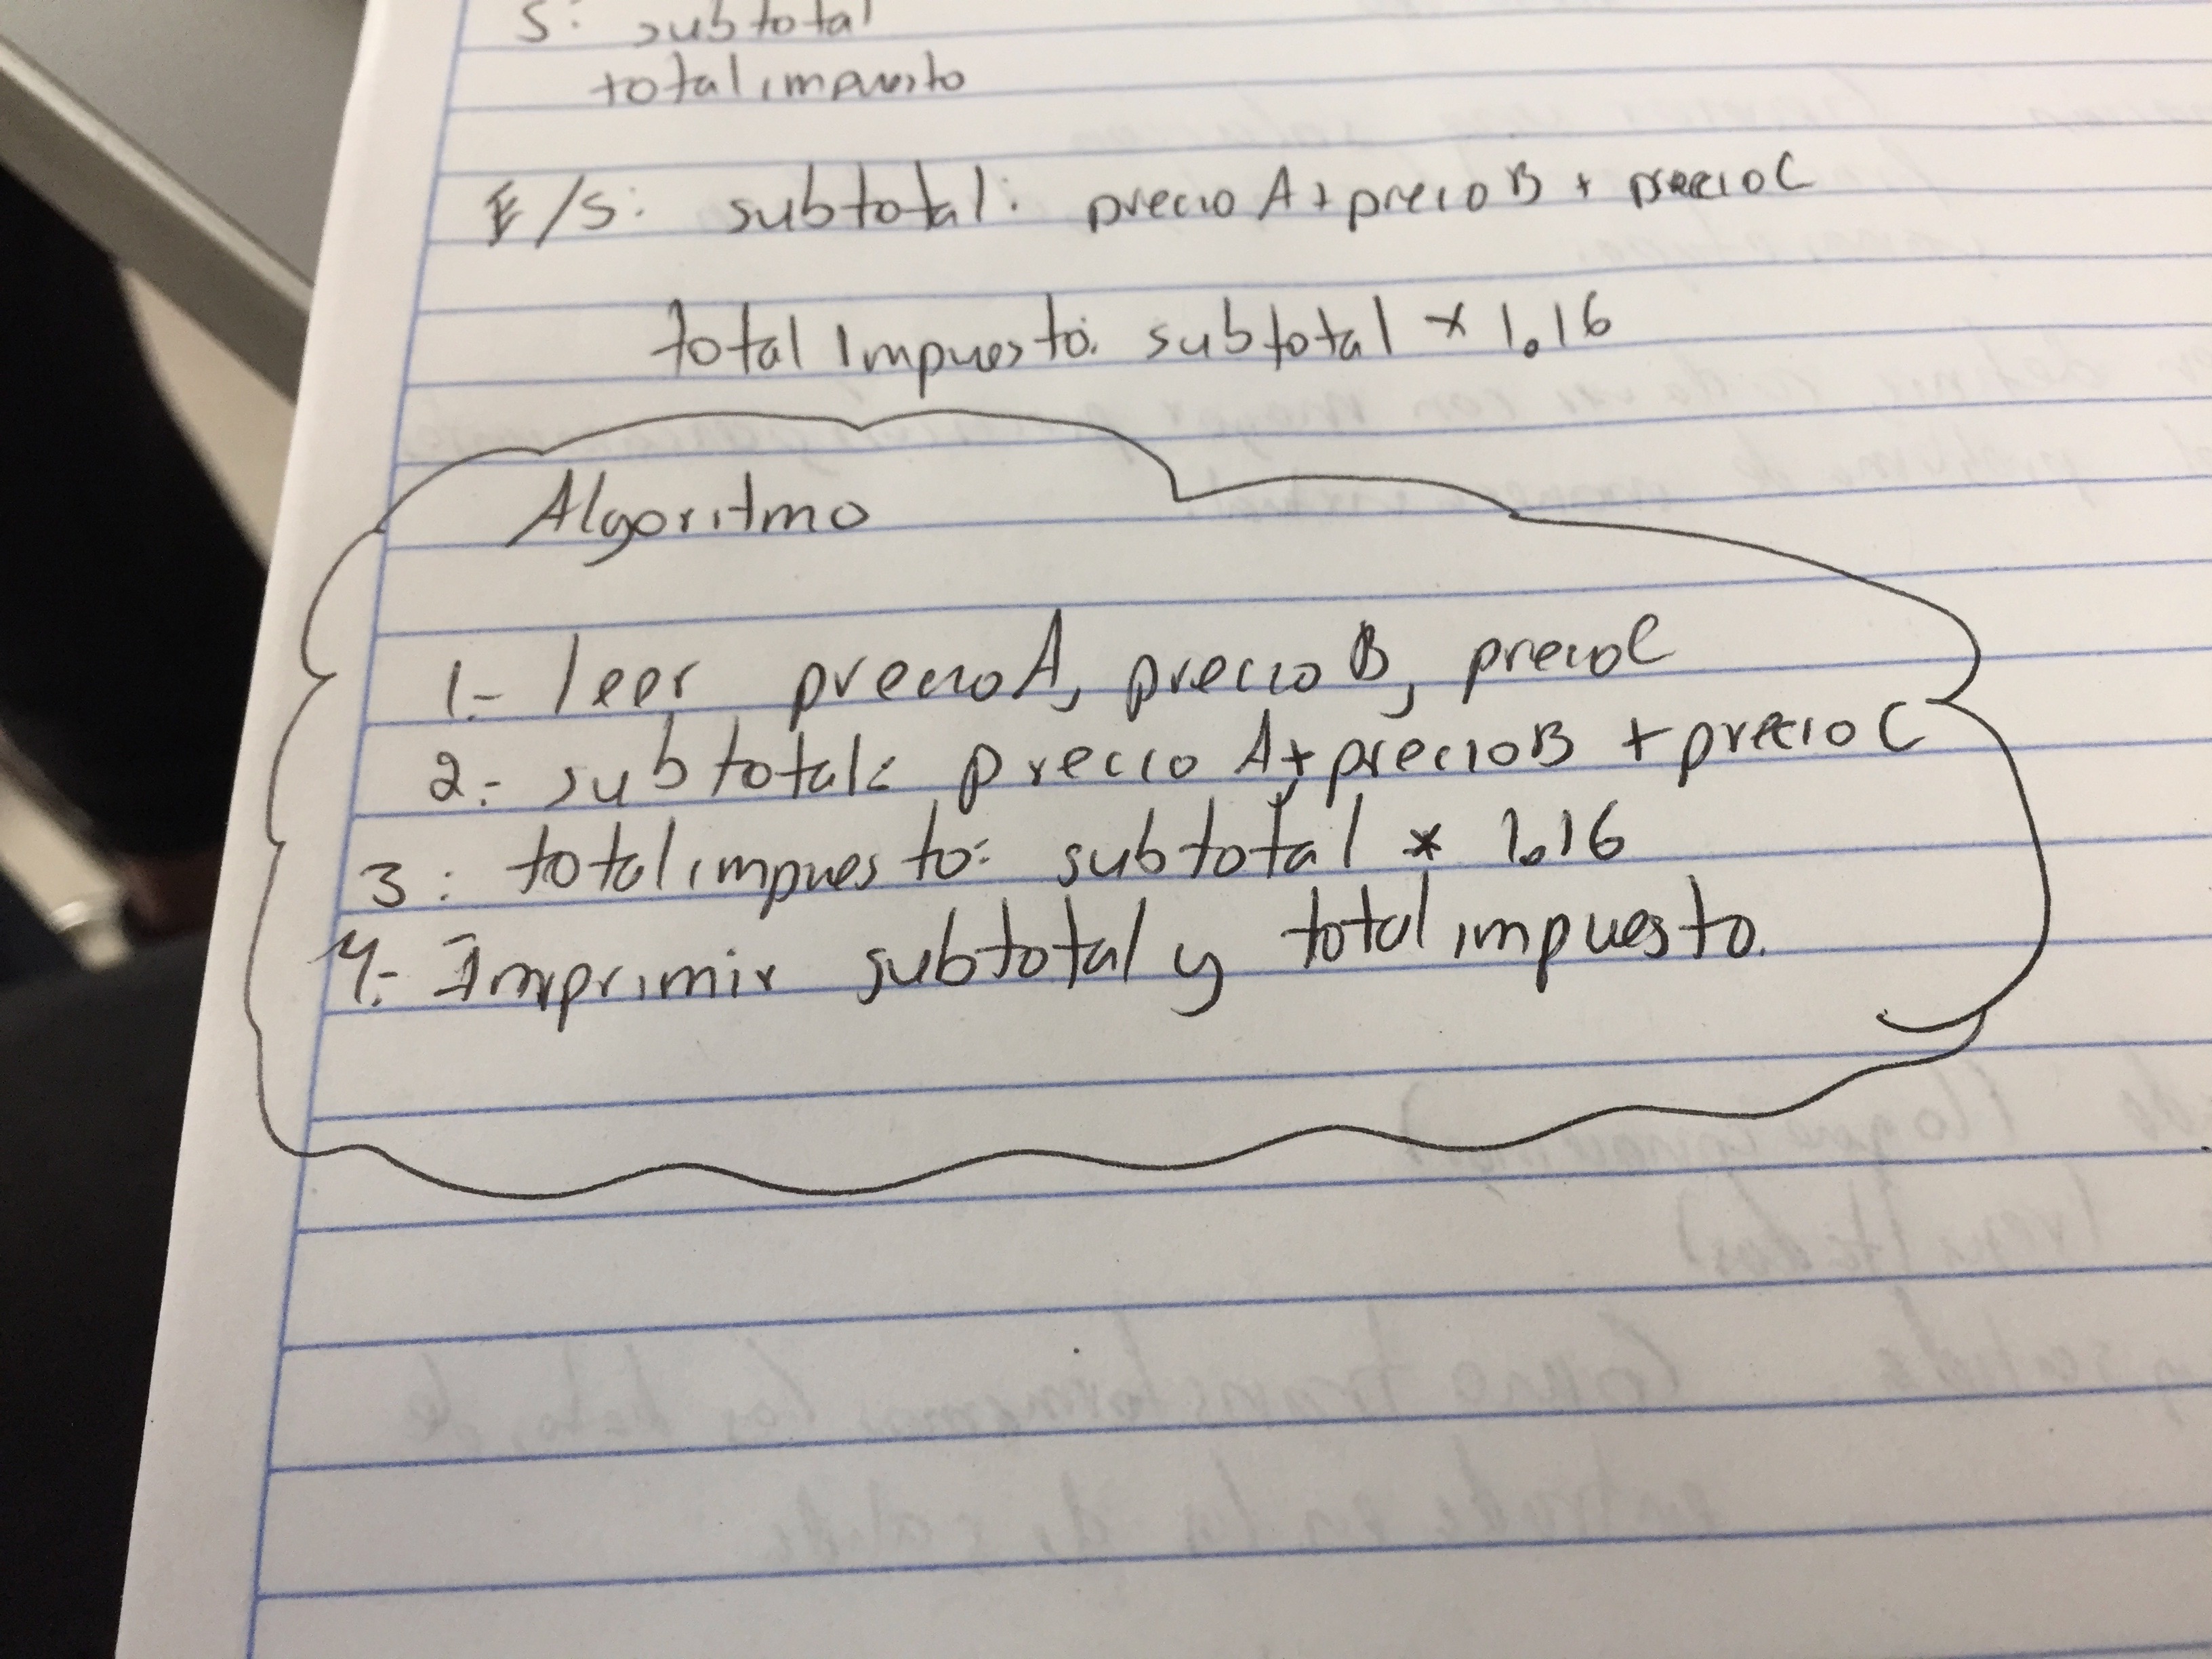 S: subtotal
totalimpuesto
E/S: subtotal: precio A + precio B + precio C
total Impuesto: subtotal * 1.16
Algoritmo
1.- leer precio A, precio B, precio C
2.- subtotal: precio A + precio B + precio C
3: totalimpuesto: subtotal * 1.16
4.- Imprimir subtotal y total impuesto.